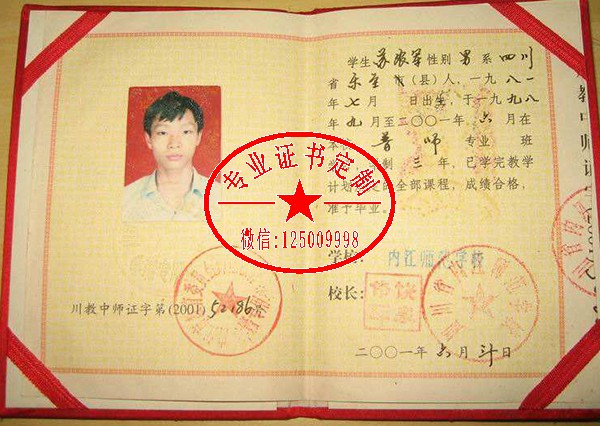 学生 苏农军 性别 男 系 四川
省 乐至 市(县)人,一九八一
年 七 月 日出生,于一九九八
年 九 月至二〇〇一年 六 月在
本 普师 专业 班
学 制 三 年,已学完教学
计划 定的全部课程,成绩合格,
准予毕业。
专业证书定制
微信:125009998
学校: 内江师范学校
校长:
川教中师证字第(2001) 52186 号
二〇〇一年 六 月 卅 日